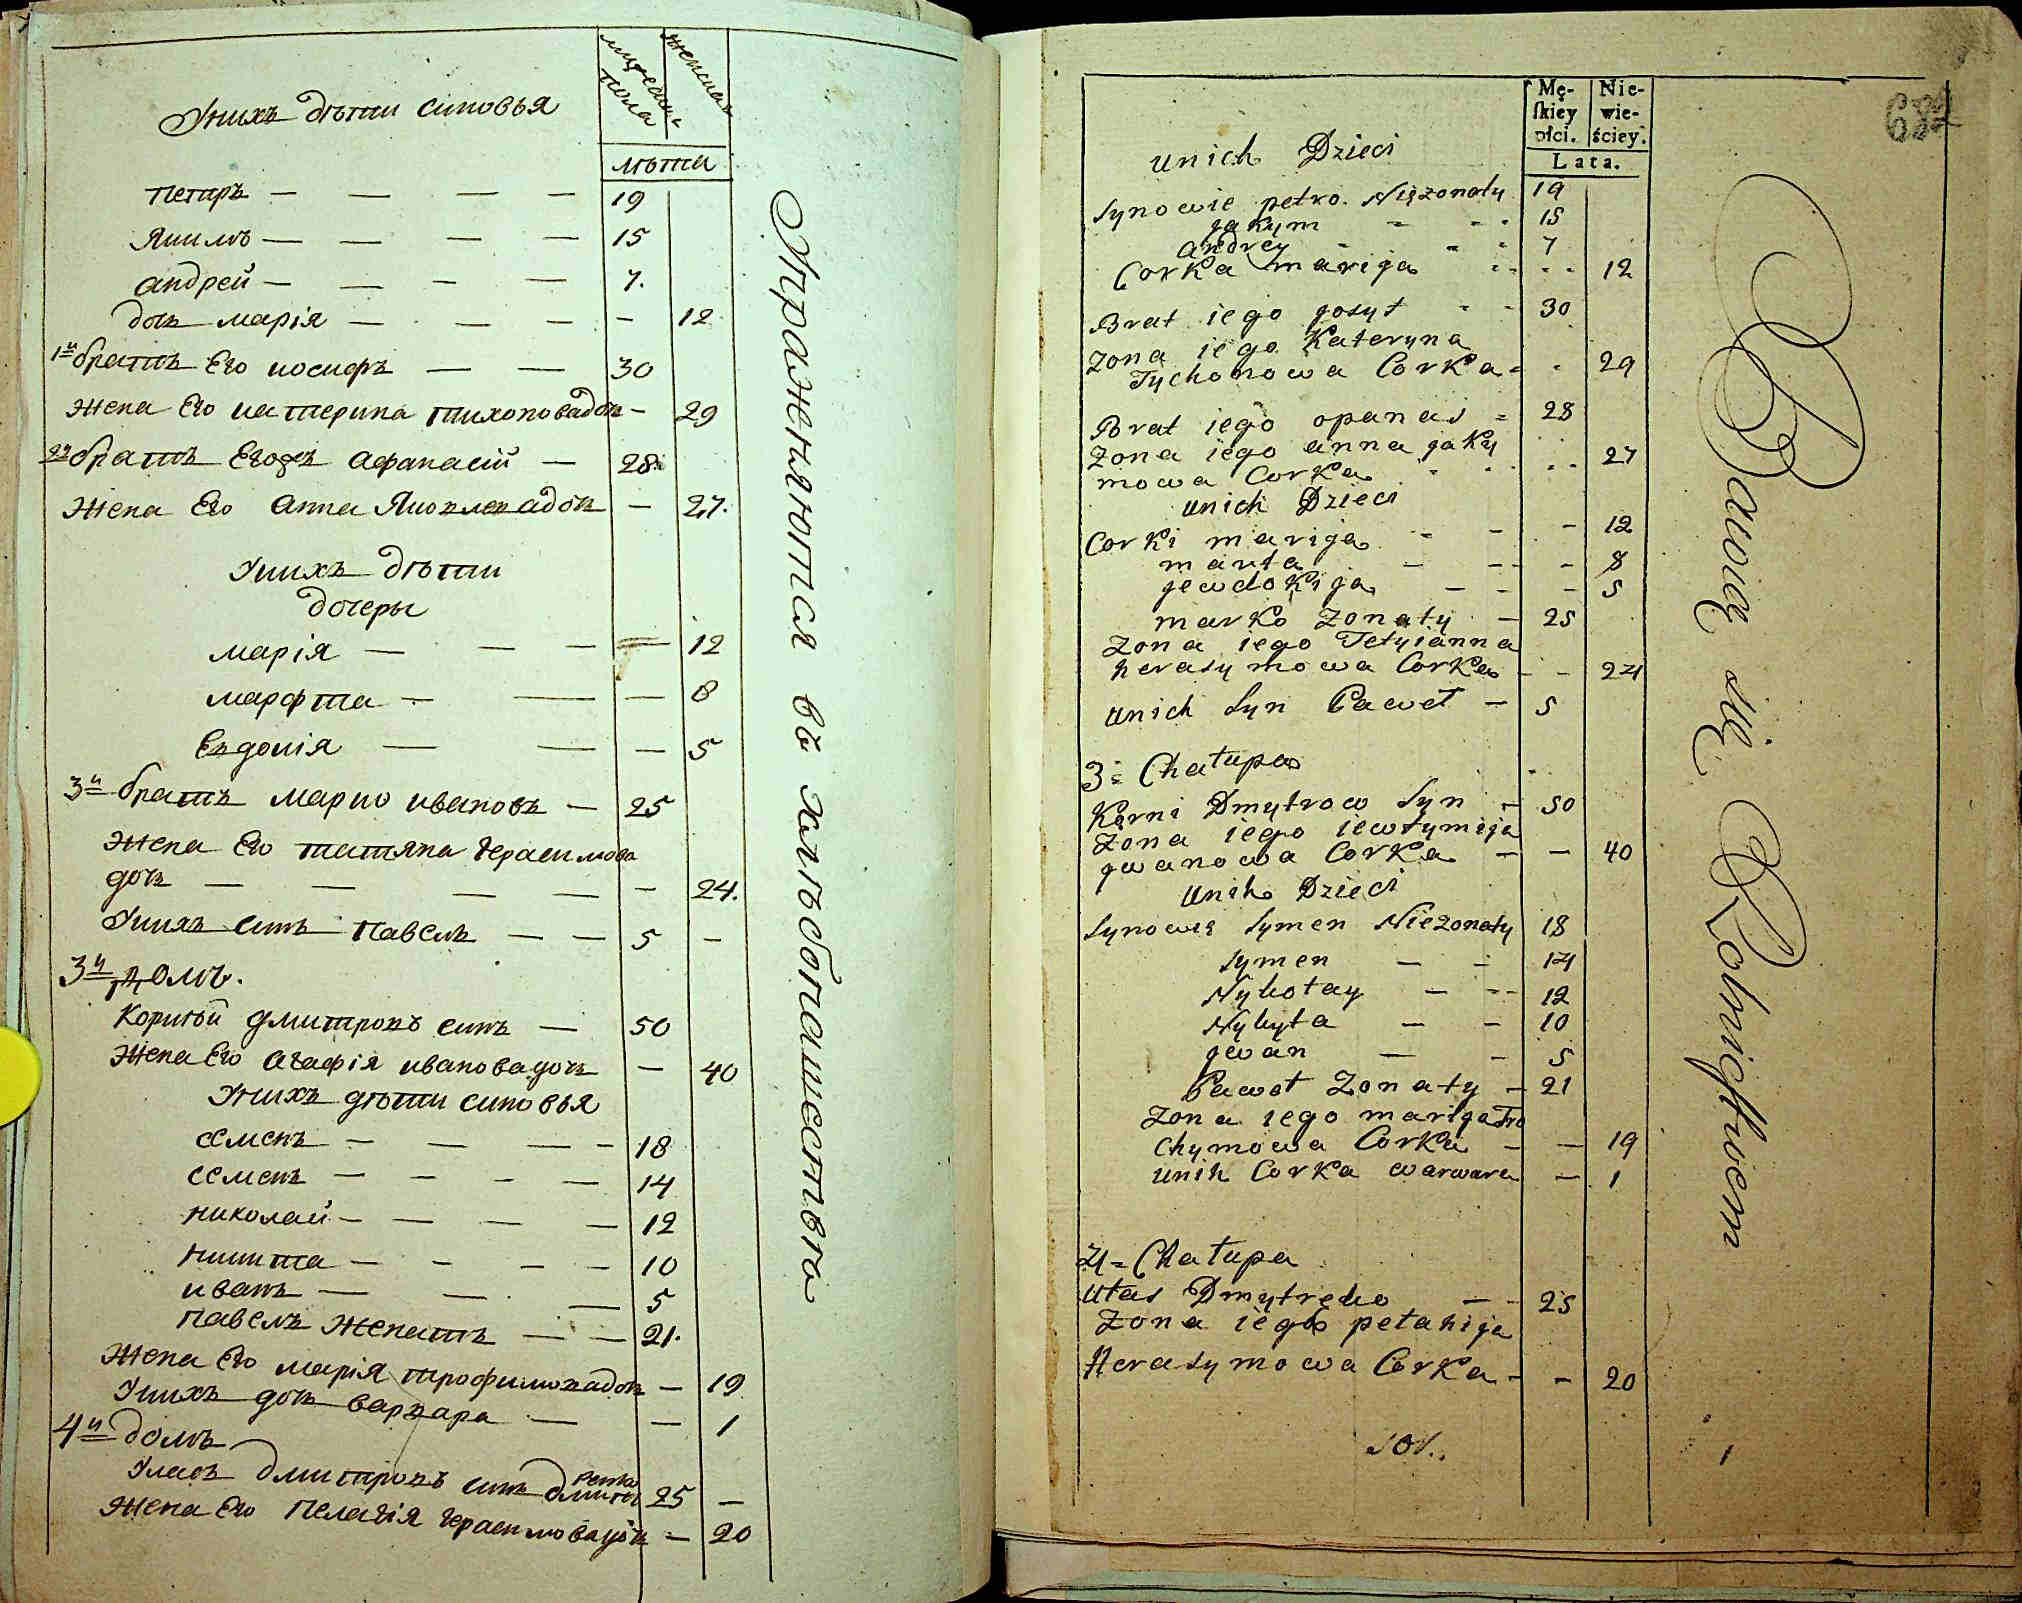 мужеска пола
женска
Унихъ дѣти синовья
лѣта
петръ — — — — 19
Якимъ — — — — 15
андрей — — — — 7.
дочь марія — — — — — 12
1й братъ Его иосифъ — — 30
жена Его катерина тихоновадочь — 29
2й братъ Егожъ афанасій — 28
жена Его анна Якимовадочь — 27.
Унихъ дѣти
дочеры
марія — — — — 12
марфта — — — 8
Евдокія — — — 5
3й братъ марко ивановъ — 25
жена Его татяна герасимова
дочь — — — — — 24.
Унихъ синъ павелъ — — 5 —
3й домъ.
Корнѣй дмитровъ синъ — 50
жена Его агафія ивановадочь — 40
Унихъ дѣти синовья
семенъ — — — — 18
семенъ — — — — 14
николай — — — — 12
никита — — — — 10
иванъ — — — 5
павелъ женатъ — — 21.
жена Его марія трофимовадочь — 19
Унихъ дочь варвара — — 1
4й домъ
Уласъ дмитровъ синъ 25 —
жена Его пелагія герасимовадочь — 20
Упражняются въ хлѣбопашествѣ
Mę-
skiey
płci.
Nie-
wie-
ściey.
Lata.
682
unich Dzieci
Synowie petro. Nieżonaty 19
jakym - - - 15
andrey - - - 7
Corka marija - - - - 12
Brat iego josyf - - 30
żona iego Kateryna
Tychonowa Corka - - 29
Brat iego opanas - 28
żona iego anna jaky
mowa Corka - - - - 27
unich Dzieci
Corki marija - - - 12
marta - - - 8
jewdokija - - - 5
marko żonaty - 25
żona iego Tetyianna
herasymowa Corka - - 24
unich Syn Paweł - 5
3= Chałupa
Korni Dmytrow Syn - 50
żona iego iewfymija
jwanowa Corka - - 40
Unih Dzieci
Synowie Symen Nieżonaty 18
Symen - - 14
Nykołay - - 12
Nykyta - - 10
jwan - - 5
Paweł żonaty - 21
żona iego marija Tro
chymowa Corka - - 19
unih Corka warwara - 1
4= Chałupa
Ułas Dmytrenko - - 25
żona iego pełahija
Herasymowa Corka - - 20
Bawią się Rolnictwem